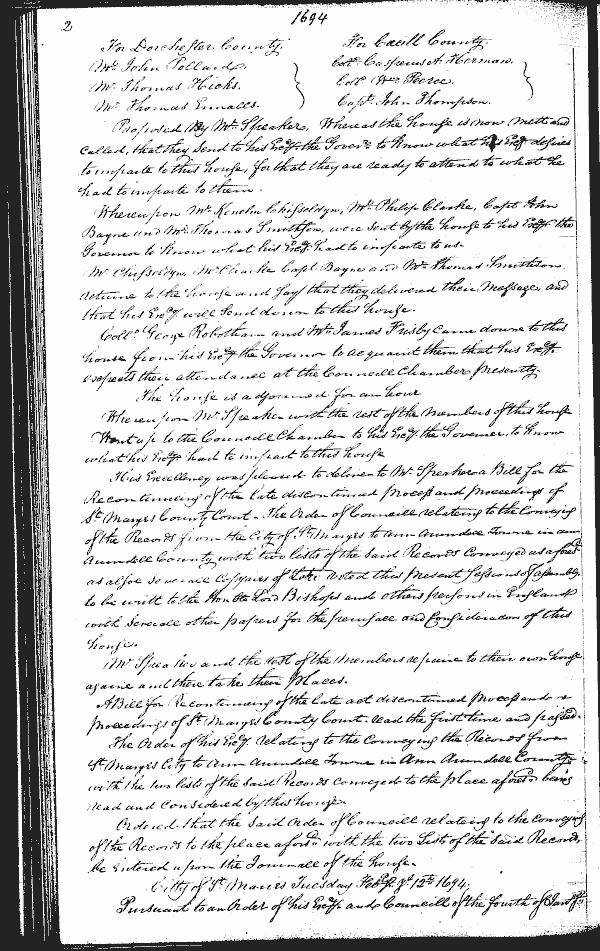 2
1694
For Dorchester County. For Cæcill County.
Mr. John Pollard. Coll. Casperus A. Herman.
Mr. Thomas Hicks. Coll. Wm. Peirce.
Mr. Thomas Ennalls. Capt. John Thompson.
Proposed By Mr. Speaker, Whereas the house is now mett and
called, that they send to his Excy. the Govern. to know what his Excy. desires
to imparte to this house, for that they are ready to attend to what he
had to imparte to them.
Whereupon Mr. Kenelm Chisseldyn, Mr. Philip Clarke, Capt. John
Bayne and Mr. Thomas Smithson, were sent by the house to his Excy. the
Governor to know what his Excy. had to imparte to us.
Mr. Chisseldyn Mr. Clarke Capt. Bayne and Mr. Thomas Smithson
returne to the house and say that they delivered their Message and
that his Excy. will send down to this house.
Collo. George Robotham and Mr. James Frisby came downe to this
house from his Excy. the Governor to acquaint them that his Excy.
expects their attendance at the Councill Chamber presently.
The house is adjourned for an hour
Whereupon Mr. Speaker with the rest of the Members of this house
Went up to the Councill Chamber to his Excy. the Governor, to know
what his Excy. had to impart to this house
His Excellency was pleased to deliver to Mr. Speaker a Bill for the
Recontinueing of the late discontinued process and proceedings of
St. Maryes County Court. The Order of Councill relating to the Conveying
of the Records from the City of St. Maryes to Ann Arundell Towne in ann
Arundell County with two lists of the said Records Conveyed as aforesd.
as alsoe severall Copyes of acted this present Sessions of assembly
to be writt to the Honble Lord Bishops and others persons in England
with severall other papers for the perusall and Consideracon of this
house.
Mr. Speaker and the rest of the Members repaire to their own house
againe and there take their places.
A Bill for Recontinueing of the late act discontinued process and
proceedings of St. Maryes County Court. read the first time and passed.
The Order of his Excy. relating to the Conveying the Records from
St. Maryes City to Ann Arundell Towne in Ann Arundell County
with the two lists of the said Records conveyed to the place aforesd. being
read and Considered by this house.
Ordered that the said Order of Councill relating to the conveying
of the Records to the place aforesd. with the two Lists of the said Records,
be Entered upon the Journall of the house.
Citty of St. Maries Tuesday Febry. ye. 12th. 1694.
Pursuant to an Order of his Excy. and Councill of the fourth of